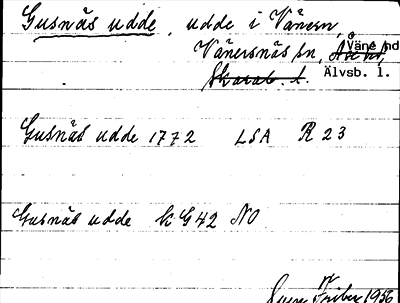 Gusnäs udde, udde i Vänern,
Vänersnäs sn, Åse hd, Väne hd
Skarab. l. Älvsb. l.
Gusnäs udde 1772 LSA R 23
Gusnäs udde k G 42 NO
Sven Friber 1956